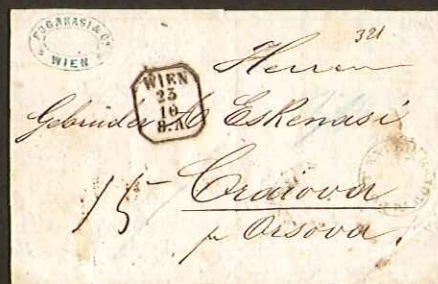 FUGANASI & Cº
WIEN
321
WIEN
23
10
8.A
Herren
Gebrüder Eskenasi
15
Craiova
pr Orsova.